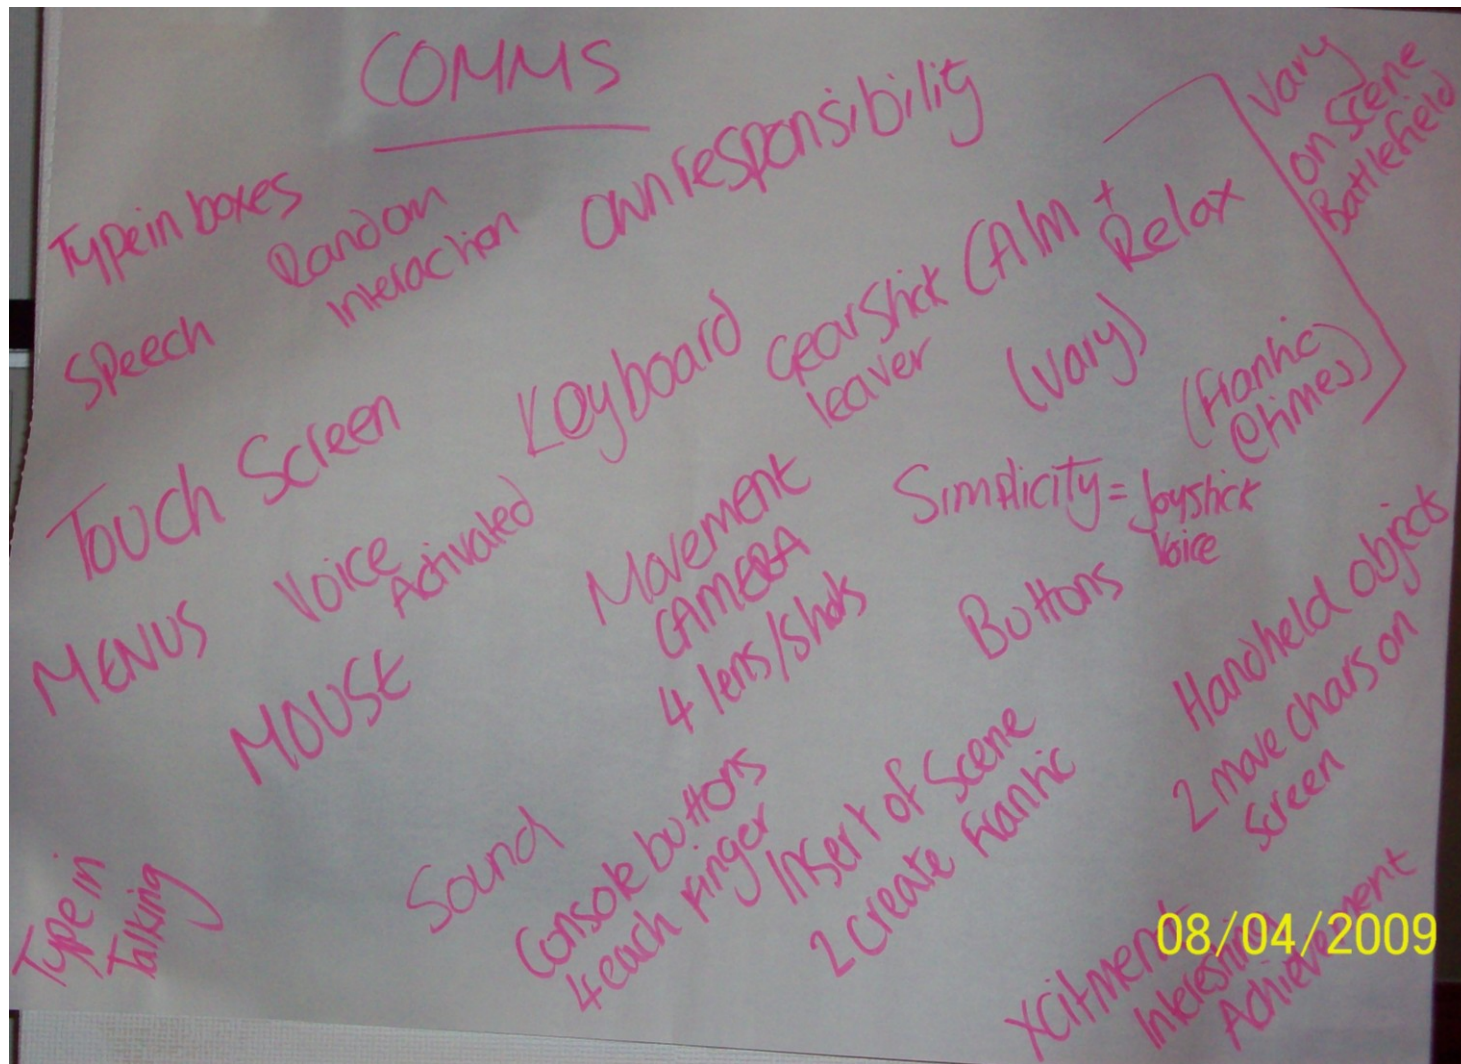 COMMS
Type in boxes
Random
interaction
Own responsibility
Vary
on scene
Battlefield
Speech
Keyboard
Gearshick
leaver
CAlm +
Relax
(Vary)
(Frantic
@ times)
Touch Screen
Voice
Activated
Movement
CAMERA
4 lens/Shots
Simplicity = Joystick
Voice
Buttons
Handheld objects
2 move chars on
screen
MENUS
MOUSE
Sound
Console buttons
4 each finger
Insert of Scene
2 create Frantic
Type in
Talking
Xcitment
Interesting
Achievement
08/04/2009